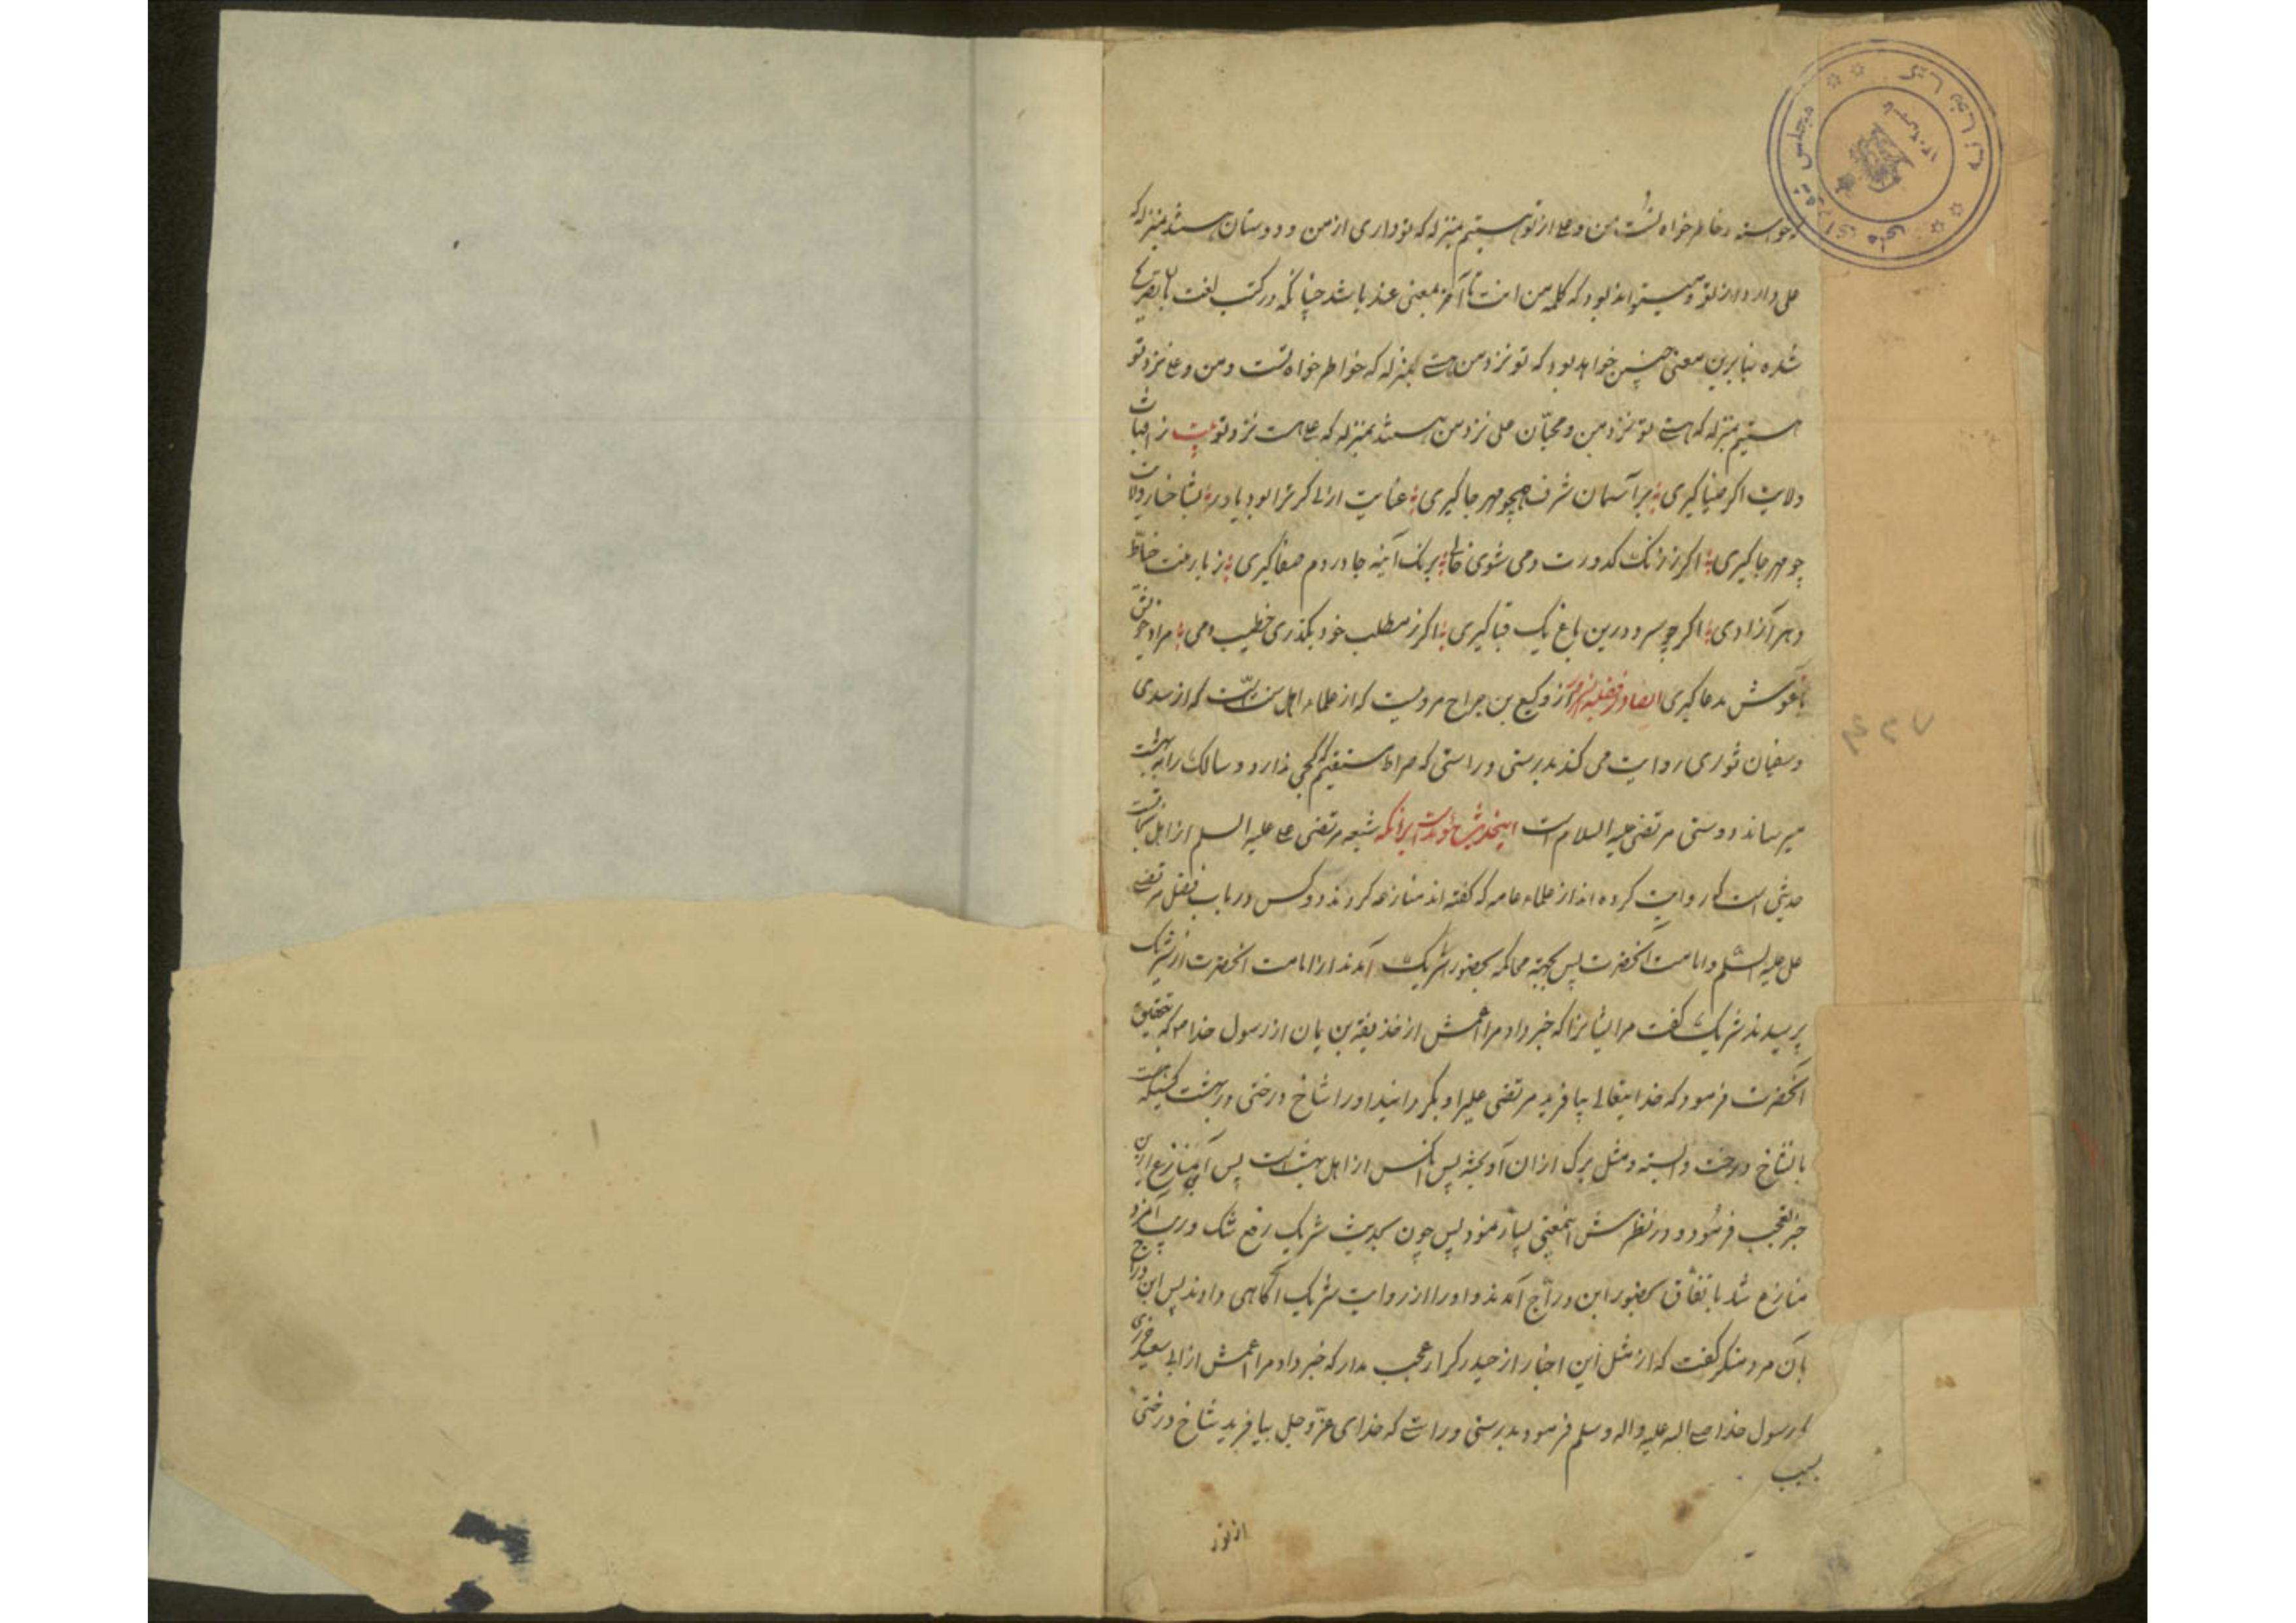 خواسته و خاطرخواه تست من و علی از تو هستیم بمنزله که تو داری از من و دوستان هستند بمنزله که
علی دارد از تو و میتواند بود که کلمه من انت تا آخر بمعنی عند باشد چنانکه در کتب لغت
شده بنابرین معنی چنین خواهد بود که تو نزد من هستی بمنزله که خواطرخواه تست و من و علی نزد تو
هستیم بمنزله که هستی تو نزد من و محبّان علی نزد من هستند بمنزله که علی هست نزد تو بیت ز
ولایت اگر ضیا گیری بر آسمان شرف همچو مهر جا گیری عنایت ازلی گر ترا بود یاور
چو مهر جا گیری اگر ز زنک کدورت دمی شوی خالی برنک آینه جا در دم صفا گیری ز بار منت
دهر آزادی اگر چو سرو درین باغ یک قبا گیری اگر ز مطلب خود بگذری خطیب دمی مراد
بآغوش مدعا گیری ایضا از وکیع بن جراح مرویست که از علماء اهل سنت است که از سدی
و سفیان ثوری روایت می کند بدرستی و راستی که صراط مستقیم که کجی ندارد و سالک را به بهشت
میرساند دوستی مرتضی علیه السلام است شیعه مرتضی علی علیه السلم از اهل نجات
حدیثی است که روایت کرده اند از علماء عامه که گفته اند منازعه کردند دو کس در باب فضل مرتضی
علی علیه السلم و امامت آنحضرت پس بجهة محاکمه بحضور شریک آمدند از امامت آنحضرت از شریک
پرسیدند شریک گفت مر ایشانرا که خبر داد مرا اعمش از حذیفة بن یمان از رسول خدا که بتحقیق
آنحضرت فرمود که خدایتعالی بیافرید مرتضی علیرا و بگردانید او را شاخ درختی در بهشت
بانشاخ درخت وابسته و مثل برک از آن آویخته پس آنکس از اهل بهشت است پس آن منازع ازین
خبر تعجب فرمود و در نظرش اینمعنی بسیار نمود پس چون بحدیث شریک رفع شک و ریب آنمرد
منازع نشد باتفاق بحضور ابن درّاج آمدند و او را از روایت شریک آگاهی دادند پس ابن درّاج
بآن مرد منکر گفت که از مثل این اخبار از حیدر کرار عجب مدار که خبر داد مرا اعمش از ابی سعید خدری
که رسول خدا صلی الله علیه واله وسلم فرمود بدرستی و راستی که خدای عزّ و جلّ بیافرید شاخ درختی
از نور
مجلس شورای ملی